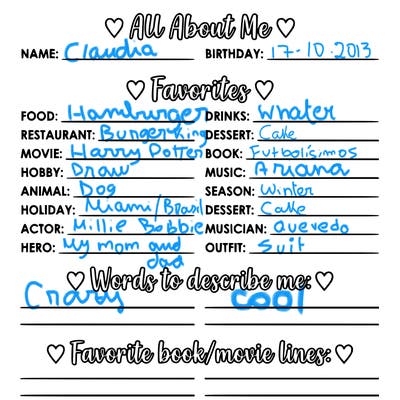 All About Me
NAME: Claudia BIRTHDAY: 17-10.2013
Favorites
FOOD: Hamburger DRINKS: Whater
RESTAURANT: Burger King DESSERT: Cake
MOVIE: Harry Potter BOOK: Futbolísimos
HOBBY: Draw MUSIC: Ariana
ANIMAL: Dog SEASON: Winter
HOLIDAY: Miami/Brasil DESSERT: Cake
ACTOR: Millie Bobbie MUSICIAN: Quevedo
HERO: My mom and dad OUTFIT: Suit
Words to describe me:
Crazy cool
Favorite book/movie lines: